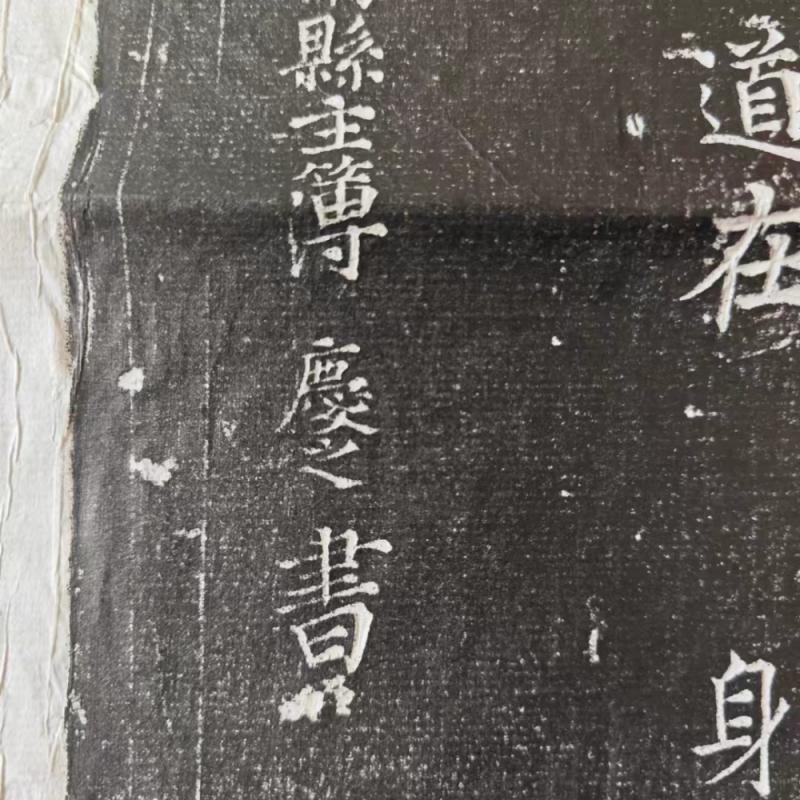 道在身
縣主簿慶之書